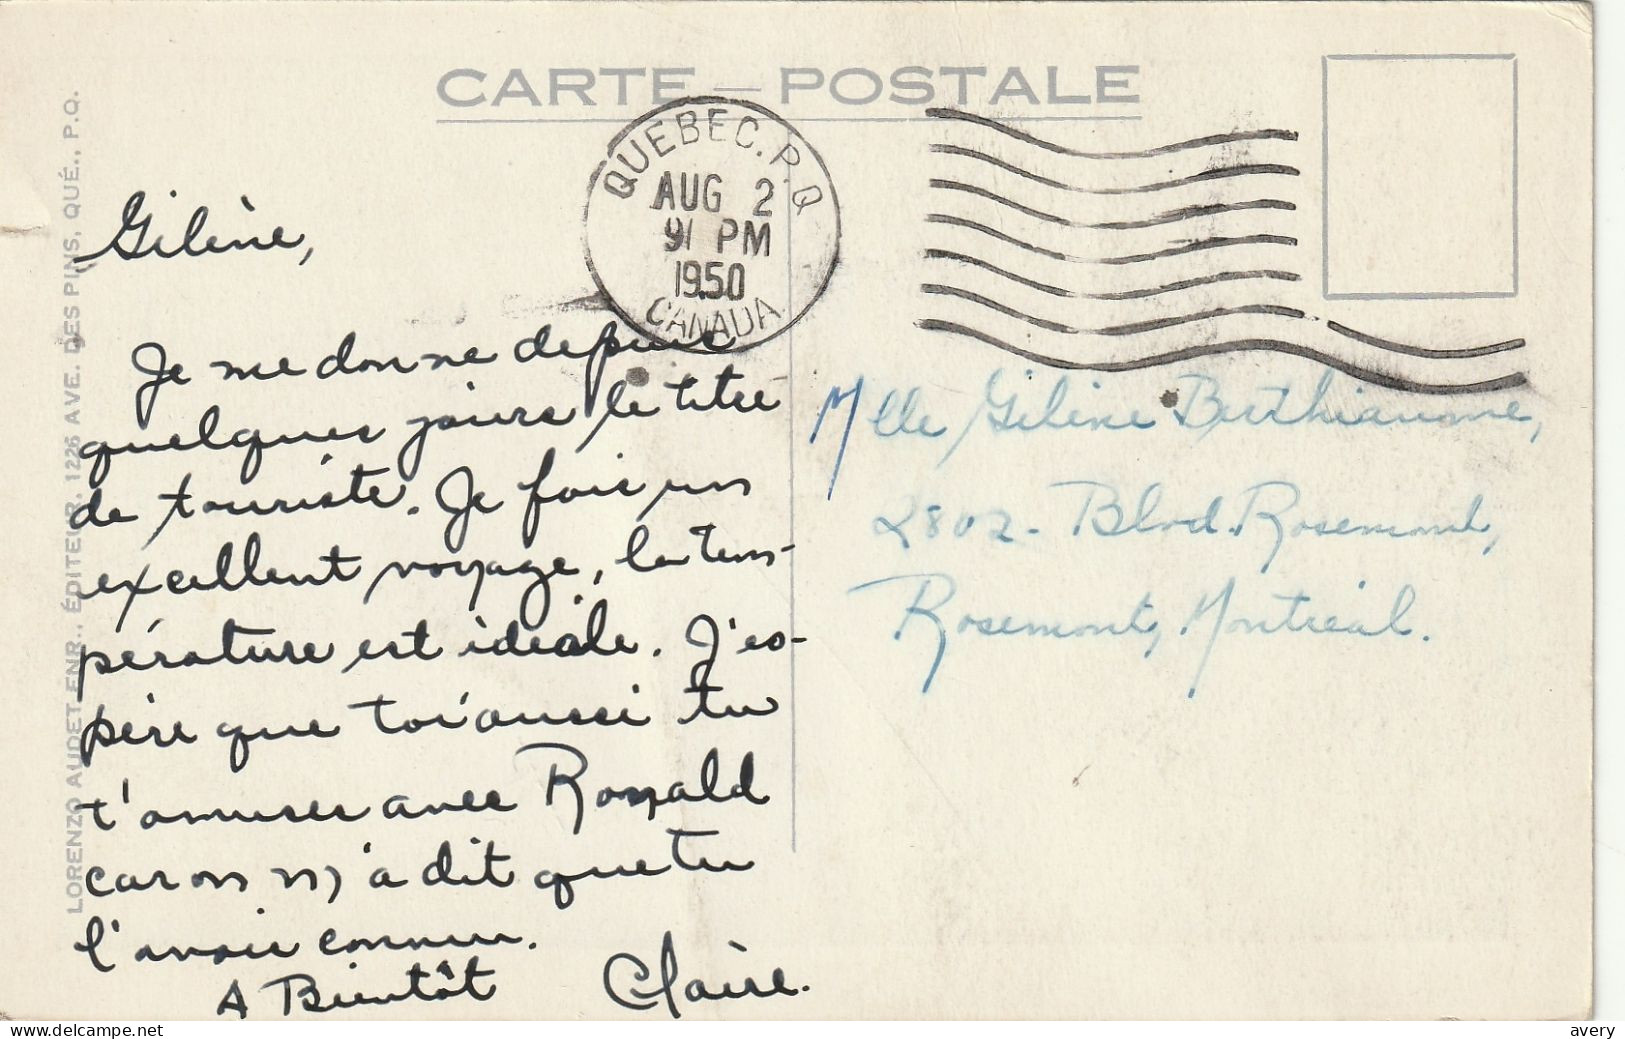 CARTE - POSTALE
QUEBEC. P.Q.
AUG 2
9 PM
1950
CANADA
Gilène,
Je me donne depuis
quelques jours le titre
de touriste. Je fais un
excellent voyage, la tem-
pérature est idéale. J'es-
père que toi aussi tu
t'amuses avec Ronald
car on m'a dit que tu
l'avais connu.
A Bientôt Claire.
Mlle Gilène Berthiaume,
2802 - Blvd. Rosemont,
Rosemont, Montréal.
LORENZO AUDET ENR., ÉDITEUR, 1226 AVE. DES PINS, QUÉ., P.Q.
delcampe.net
avery